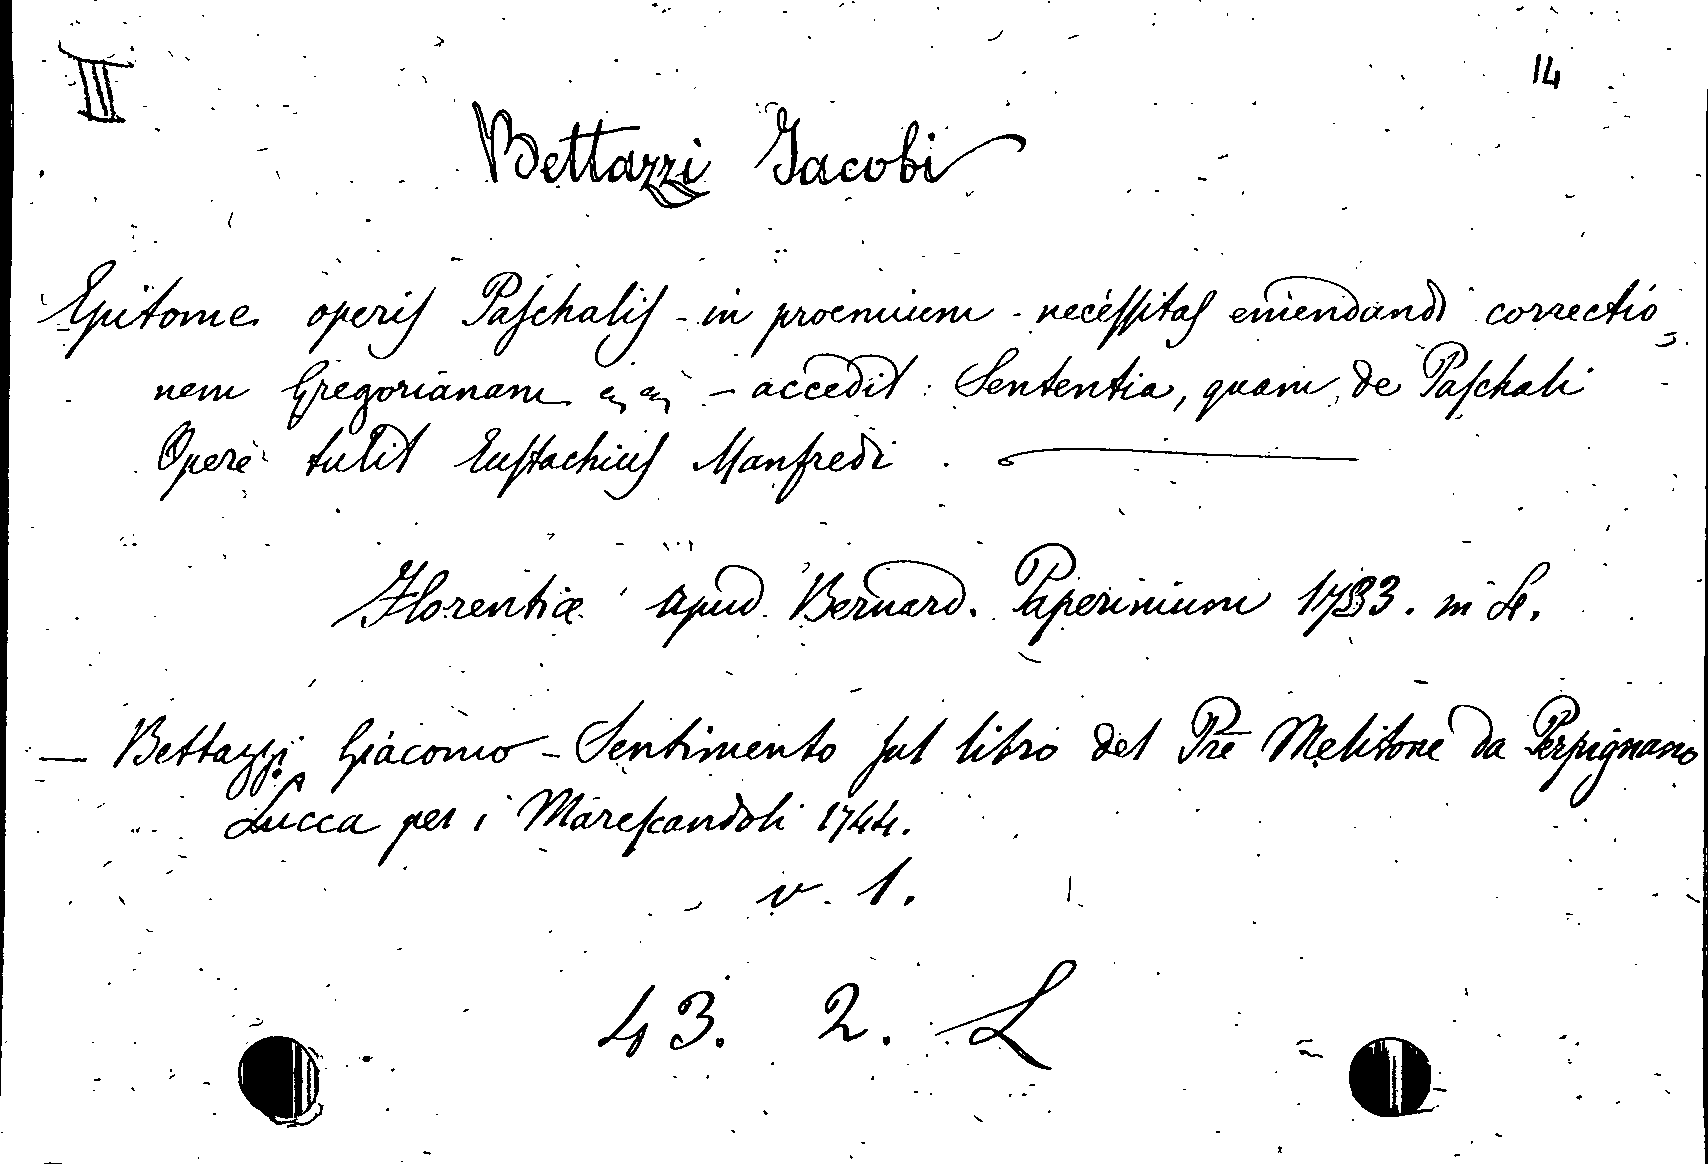 III
14
Bettazzi Jacobi
Epitome operis Paschalis - in proemium - necessitas emendandi correctio
nem Gregorianam - accedit : Sententia, quam de Paschali
Opere tulit Eustachius Manfredi .
Florentiæ apud Bernard. Paperinium 1733. in
— Bettazzi Giacomo - Sentimento sul libro del Pre Melitone da Perpignano
Lucca per i Marescandoli 1744.
v. 1.
43. 2. L